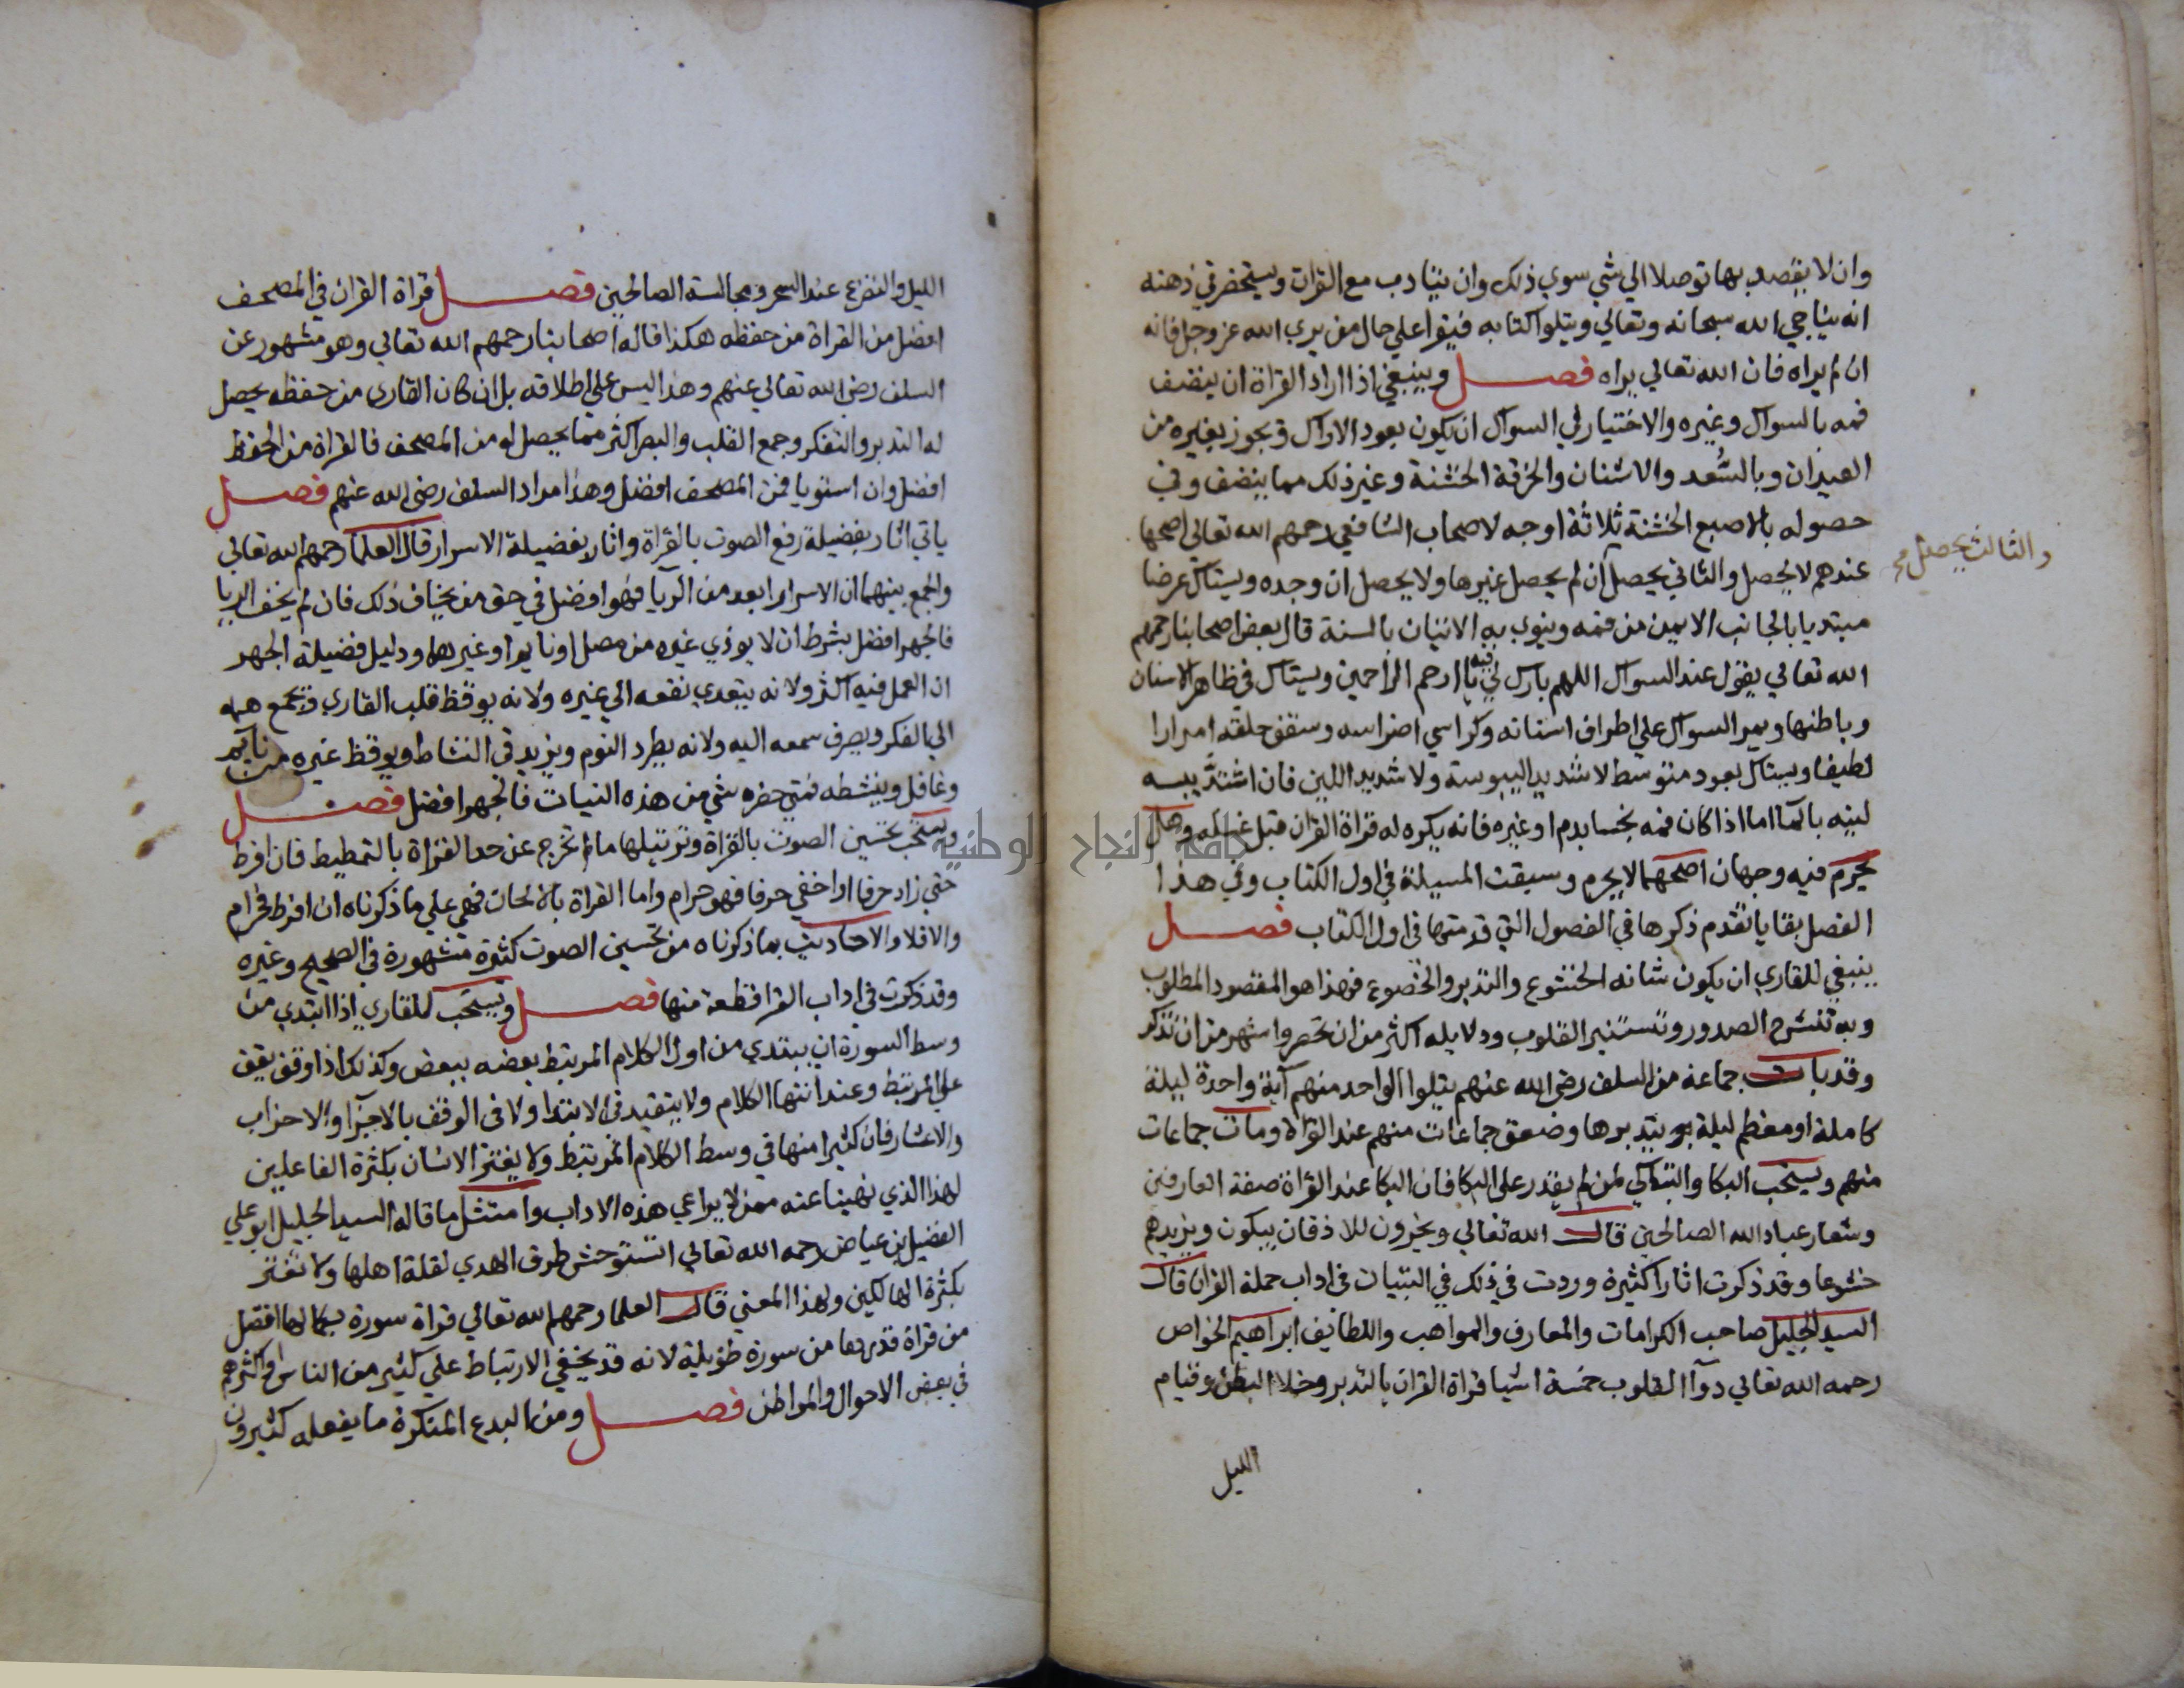 وان لا يقصد بها توصلا الي شي سوي ذلك وان يتادب مع القران ويستحضر في ذهنه
انه يناجي الله سبحانه وتعالي ويتلوا كتابه فيقرا علي حال من يري الله عز وجل فانه
ان لم يراه فان الله تعالي يراه فصل وينبغي اذا اراد القراة ان ينضف
فمه بالسواك وغيره والاختيار في السواك ان يكون بعود الاراك ويجوز بغيره من
العيدان وبالسُّعد والاشنان والخرقة الخشنة وغير ذلك مما ينضف وفي
حصوله بالاصبع الخشنة ثلاثة اوجه لاصحاب الشافعي رحمهم الله تعالي اصحها
عندهم لا يحصل والثاني يحصل ان لم يحصل غيرها ولا يحصل ان وجده ويستاك عرضا
والثالث يحصل
مبتديا بالجانب الايمن من فمه وينوي به الاتيان بالسنة قال بعض اصحابنا رحمهم
الله تعالي يقول عند السواك اللهم بارك لي فيه يا ارحم الراحمين ويستاك في ظاهر الاسنان
وباطنها ويمر السواك علي اطراف اسنانه وكراسي اضراسه وسقف حلقه امرارا
لطيفا ويستاك بعود متوسط لا شديد اليبوسة ولا شديد اللين فان اشتدَّ يبسه
لينه بالما اما اذا كان فمه نجسا بدم او غيره فانه يكره له قراة القران قبل غسله وهل
يحرم فيه وجهان اصحهما لا يحرم وسبقت المسيلة في اول الكتاب وفي هذا
الفصل بقايا تقدم ذكرها في الفصول التي قدمتها في اول الكتاب فصل
ينبغي للقاري ان يكون شانه الخشوع والتدبر والخضوع فهذا هو المقصود المطلوب
وبه تنشرح الصدور وتستنير القلوب ودلايله اكثر من ان تحصر واشهر من ان تذكر
وقد بات جماعة من السلف رضي الله عنهم يتلوا الواحد منهم آية واحدة ليلة
كاملة او معظم ليلة يتدبرها وضعق جماعات منهم عند القراة ومات جماعات
منهم ويستحب البكا والتباكي لمن لم يقدر علي البكا فان البكا عند القراة صفة العارفين
وشعار عباد الله الصالحين قال الله تعالي ويخرون للاذقان يبكون ويزيدهم
خشوعا وقد ذكرت اثارا كثيرة وردت في ذلك في التبيان في اداب حملة القران قال
السيد الجليل صاحب الكرامات والمعارف والمواهب واللطايف ابراهيم الخواص
رحمه الله تعالي دوآ القلوب خمسة اشيا قراة القران بالتدبر وخلا البطن وقيام
الليل
الليل والتضرع عند السحر ومجالسة الصالحين فصل قراة القران في المصحف
افضل من القراة من حفظه هكذا قاله اصحابنا رحمهم الله تعالي وهو مشهور عن
السلف رضي الله تعالي عنهم وهذا ليس علي اطلاقه بل ان كان القاري من حفظه يحصل
له التدبر والتفكر وجمع القلب والبصر اكثر مما يحصل له من المصحف فالقراة من الحفظ
افضل وان استويا فمن المصحف افضل وهذا مراد السلف رضي الله عنهم فصل
ياتي اثار بفضيلة رفع الصوت بالقراة واثار بفضيلة الاسرار قال العلما رحمهم الله تعالي
والجمع بينهما ان الاسرار ابعد من الريا فهو افضل في حق من يخاف ذلك فان لم يخف الريا
فالجهر افضل بشرط ان لا يوذي غيره من مصل او نايم او غيرهما ودليل فضيلة الجهر
ان العمل فيه اكثر ولانه يتعدي نفعه الي غيره ولانه يوقظ قلب القاري ويجمع همه
الي الفكر ويصرف سمعه اليه ولانه يطرد النوم ويزيد في النشاط ويوقظ غيره من نايم
وغافل وينشطه فمتي حضره شي من هذه النيات فالجهر افضل فصل
ويستحب تحسين الصوت بالقراة وترتيلها ما لم تخرج عن حد القراة بالتمطيط فان افرط
حتي زاد حرفا او اخفي حرفا فهو حرام واما القراة بالالحان فهي علي ما ذكرناه ان افرط فحرام
والا فلا والاحاديث بما ذكرناه من تحسين الصوت كثيرة مشهورة في الصحيح وغيره
وقد ذكرت في اداب القرا قطعة منها فصل ويستحب للقاري اذا ابتدي من
وسط السورة ان يبتدي من اول الكلام المرتبط بعضه ببعض وكذلك اذا وقف يقف
علي المرتبط وعند انتها الكلام ولا يتقيد في الابتدا ولا في الوقف بالاجزآ والاحزاب
والاعشار فان كثيرا منها في وسط الكلام المرتبط ولا يغتر الانسان بكثرة الفاعلين
لهذا الذي نهينا عنه ممن لا يراعي هذه الاداب وامتثل ما قاله السيد الجليل ابو علي
الفضيل بن عياض رحمه الله تعالي لا تستوحش طرق الهدي لقلة اهلها ولا تغتر
بكثرة الهالكين ولهذا المعني قال العلما رحمهم الله تعالي قراة سورة بكمالها افضل
من قراة قدرها من سورة طويلة لانه قد يخفي الارتباط علي كثير من الناس او اكثرهم
في بعض الاحوال والمواطن فصل ومن البدع المنكرة ما يفعله كثيرون
جامعة النجاح الوطنية